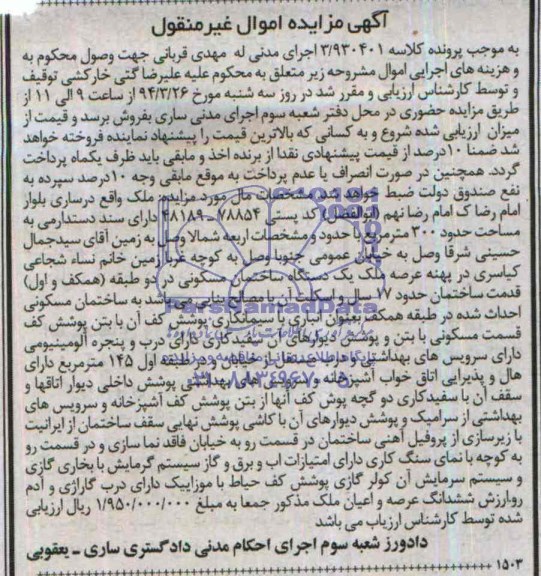 آگهی مزایده اموال غیرمنقول
به موجب پرونده کلاسه ۳/۹۳۰۴۰۱ اجرای مدنی له مهدی قربانی جهت وصول محکوم به
و هزینه های اجرایی اموال مشروحه زیر متعلق به محکوم علیه علیرضا گتی خارکشی توقیف
و توسط کارشناس ارزیابی و مقرر شد در روز سه شنبه مورخ ۹۴/۳/۲۶ از ساعت ۹ الی ۱۱ از
طریق مزایده حضوری در محل دفتر شعبه سوم اجرای مدنی ساری بفروش برسد و قیمت از
میزان ارزیابی شده شروع و به کسانی که بالاترین قیمت را پیشنهاد نماینده فروخته خواهد
شد ضمنا ۱۰درصد از قیمت پیشنهادی نقدا از برنده اخذ و مابقی باید ظرف یکماه پرداخت
گردد. همچنین در صورت انصراف یا عدم پرداخت به موقع مابقی وجه ۱۰درصد سپرده به
نفع صندوق دولت ضبط خواهد شد. مشخصات مال مورد مزایده: ملک واقع درساری بلوار
امام رضا ک امام رضا نهم (ابوالفضل) کد پستی ۷۸۸۵۴-۴۸۱۸۹ دارای سند دستدارمی به
مساحت حدود ۳۰۰ مترمربع با حدود و مشخصات اربعه شمالا وصل به زمین آقای سیدجمال
حسینی شرقا وصل به خیابان عمومی جنوبا وصل به کوچه غربا زمین خانم نساء شجاعی
کیاسری در پهنه عرصه ملک یک دستگاه ساختمان مسکونی در دو طبقه (همکف و اول)
قدمت ساختمان حدود ۱۷سال و اسکلت آن با مصالح بنایی می باشد به ساختمان مسکونی
احداث شده در طبقه همکف بعنوان انباری با سفیدکاری پوشش کف آن با بتن پوشش کف
قسمت مسکونی با بتن و پوشش دیوارهای آن سفیدکاری دارای درب و پنجره آلومینیومی
دارای سرویس های بهداشتی و درب مستقل از خیابان و در طبقه اول ۱۴۵ مترمربع دارای
هال و پذیرایی اتاق خواب آشپزخانه و سرویس های بهداشتی پوشش داخلی دیوار اتاقها و
سقف آن با سفیدکاری دو گچه پوش کف آنها از بتن پوشش کف آشپزخانه و سرویس های
بهداشتی از سرامیک و پوشش دیوارهای آن با کاشی پوشش نهایی سقف ساختمان از ایرانیت
با زیرسازی از پروفیل آهنی ساختمان در قسمت رو به خیابان فاقد نما سازی و در قسمت رو
به کوچه با نمای سنگ کاری دارای امتیازات اب و برق و گاز سیستم گرمایش با بخاری گازی
و سیستم سرمایش آن کولر گازی پوشش کف حیاط با موزاییک دارای درب گاراژی و آدم
رو ارزش ششدانگ عرصه و اعیان ملک مذکور جمعا به مبلغ ۱/۹۵۰/۰۰۰/۰۰۰ ریال ارزیابی
شده توسط کارشناس ارزیاب می باشد
دادورز شعبه سوم اجرای احکام مدنی دادگستری ساری ـ یعقوبی
۱۵۰۳
ParsNamadData